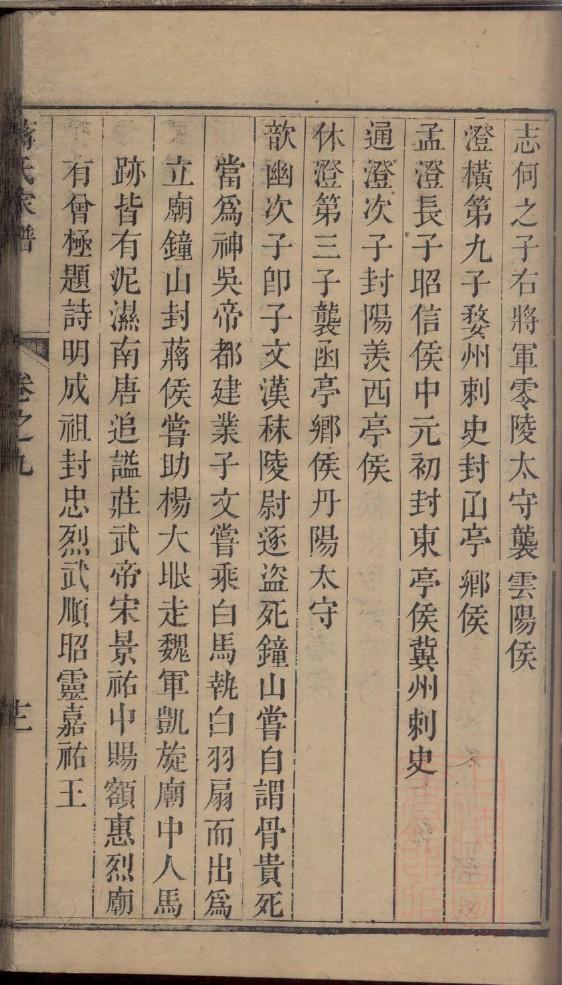 志何之子右將軍零陵太守襲雲陽侯
澄橫第九子婺州刺史封凾亭鄉侯
孟澄長子昭信侯中元初封東亭侯冀州刺史
通澄次子封陽羨西亭侯
休澄第三子襲函亭鄉侯丹陽太守
歆幽次子卽子文漢秣陵尉逐盜死鐘山嘗自謂骨貴死
當爲神吳帝都建業子文嘗乘白馬執白羽扇而出爲
立廟鐘山封蔣侯嘗助楊大眼走魏軍凱旋廟中人馬
跡皆有泥濕南唐追謚莊武帝宋景祐中賜額惠烈廟
有曾極題詩明成祖封忠烈武順昭靈嘉祐王
蔣氏家譜
卷之九